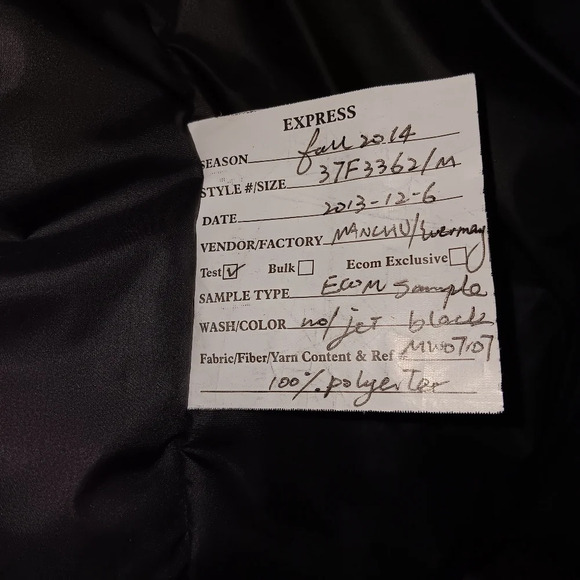 EXPRESS
SEASON fall 2014
STYLE #/SIZE 37F3362/M
DATE 2013-12-6
VENDOR/FACTORY MANCHU/
Test Bulk Ecom Exclusive
SAMPLE TYPE Ecom sample
WASH/COLOR no/jet black
Fabric/Fiber/Yarn Content & Ref
100% polyester